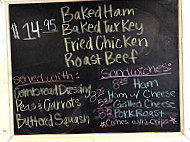 $14.95
Baked Ham
Baked Turkey
Fried Chicken
Roast Beef
Served with:
Cornbread Dressing
Peas & Carrots
Buttered Squash
Sandwiches:
Ham
Ham w/ Cheese
Grilled Cheese
Pork Roast
*Comes w/ chips*